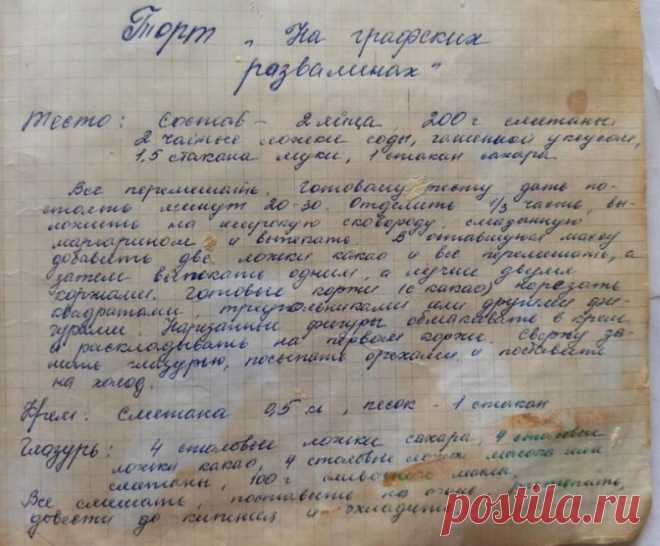 Торт „На графских
развалинах"
Тесто: Состав – 2 яйца, 200 г сметаны
2 чайные ложки соды, гашенной уксусом,
1,5 стакана муки, 1 стакан сахара
Все перемешать. Готовому тесту дать по-
стоять минут 20-30. Отделить 1/3 часть, вы-
ложить на широкую сковороду, смазанную
маргарином и выпекать. В оставшуюся массу
добавить две ложки какао и все перемешать, а
затем выпекать одним, а лучше двумя
коржами. Готовые коржи (с какао) нарезать
квадратами, треугольниками или другими фи-
гурами. Нарезанные фигуры обмакивать в крем
и раскладывать на первом корже. Сверху за-
лить глазурью, посыпать орехами и поставить
на холод.
Крем: Сметана 0,5 л, песок – 1 стакан
Глазурь: 4 столовые ложки сахара, 4 столовые
ложки какао, 4 столовые ложки молока или
сметаны, 100 г сливочного масла.
Все смешать, поставить на огонь,
довести до кипения и охладить
postila.ru